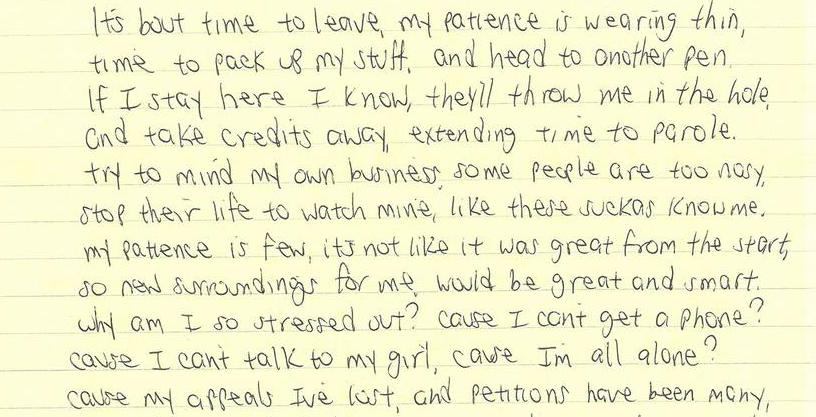 It's bout time to leave, my patience is wearing thin,
time to pack up my stuff, and head to another pen.
If I stay here I know, they'll throw me in the hole,
and take credits away, extending time to parole.
try to mind my own business, some people are too nosy,
stop their life to watch mine, like these suckas know me.
my patience is few, its not like it was great from the start,
so new surroundings for me, would be great and smart.
why am I so stressed out? cause I cant get a phone?
cause I cant talk to my girl, cause Im all alone?
cause my appeals Ive lost, and petitions have been many,